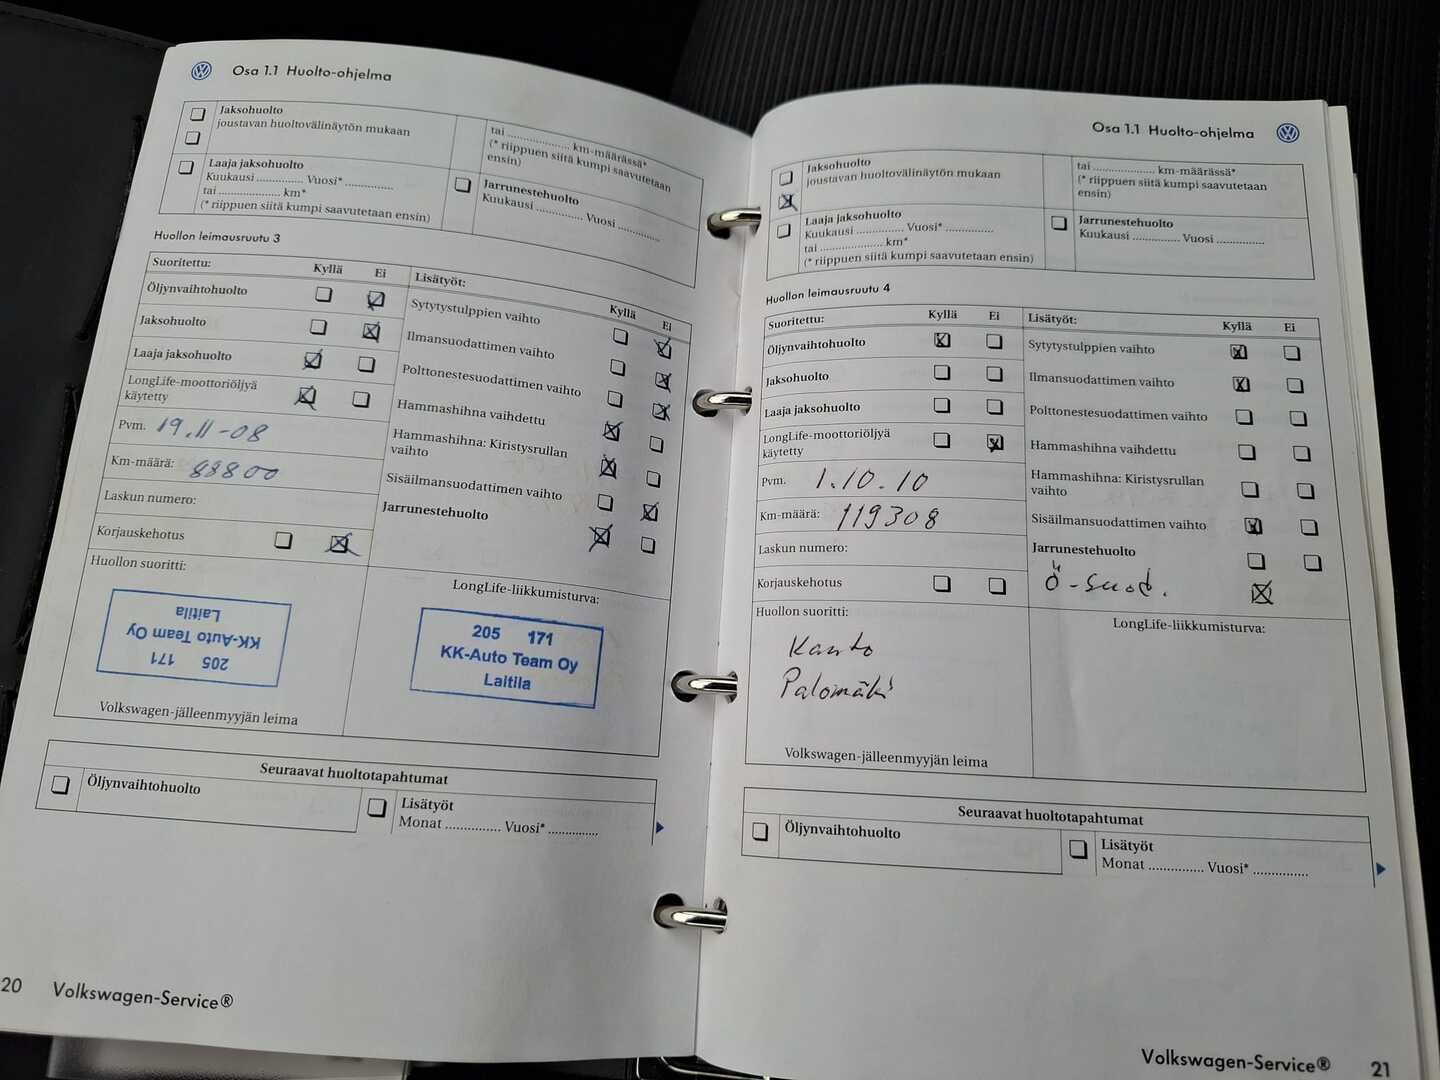 Osa 1.1 Huolto-ohjelma
Jaksohuolto
joustavan huoltovälinäytön mukaan
tai .................. km-määrässä*
(* riippuen siitä kumpi saavutetaan
ensin)
Laaja jaksohuolto
Kuukausi ............. Vuosi* .............
tai .................. km*
(* riippuen siitä kumpi saavutetaan ensin)
Jarrunestehuolto
Kuukausi ............. Vuosi .............
Huollon leimausruutu 3
Suoritettu: Kyllä Ei
Öljynvaihtohuolto
Jaksohuolto
Laaja jaksohuolto
LongLife-moottoriöljyä
käytetty
Pvm. 19.11-08
Km-määrä: 88800
Laskun numero:
Korjauskehotus
Lisätyöt: Kyllä Ei
Sytytystulppien vaihto
Ilmansuodattimen vaihto
Polttonestesuodattimen vaihto
Hammashihna vaihdettu
Hammashihna: Kiristysrullan
vaihto
Sisäilmansuodattimen vaihto
Jarrunestehuolto
Huollon suoritti:
205 171
KK-Auto Team Oy
Laitila
Volkswagen-jälleenmyyjän leima
LongLife-liikkumisturva:
205 171
KK-Auto Team Oy
Laitila
Seuraavat huoltotapahtumat
Öljynvaihtohuolto
Lisätyöt
Monat ............. Vuosi* .............
20 Volkswagen-Service®
Osa 1.1 Huolto-ohjelma
Jaksohuolto
joustavan huoltovälinäytön mukaan
tai .................. km-määrässä*
(* riippuen siitä kumpi saavutetaan
ensin)
Laaja jaksohuolto
Kuukausi ............. Vuosi* .............
tai .................. km*
(* riippuen siitä kumpi saavutetaan ensin)
Jarrunestehuolto
Kuukausi ............. Vuosi .............
Huollon leimausruutu 4
Suoritettu: Kyllä Ei
Öljynvaihtohuolto
Jaksohuolto
Laaja jaksohuolto
LongLife-moottoriöljyä
käytetty
Pvm. 1.10.10
Km-määrä: 119308
Laskun numero:
Korjauskehotus
Lisätyöt: Kyllä Ei
Sytytystulppien vaihto
Ilmansuodattimen vaihto
Polttonestesuodattimen vaihto
Hammashihna vaihdettu
Hammashihna: Kiristysrullan
vaihto
Sisäilmansuodattimen vaihto
Jarrunestehuolto
Ö-suod.
Huollon suoritti:
Kauto
Palomäki
Volkswagen-jälleenmyyjän leima
LongLife-liikkumisturva:
Seuraavat huoltotapahtumat
Öljynvaihtohuolto
Lisätyöt
Monat ............. Vuosi* .............
Volkswagen-Service® 21